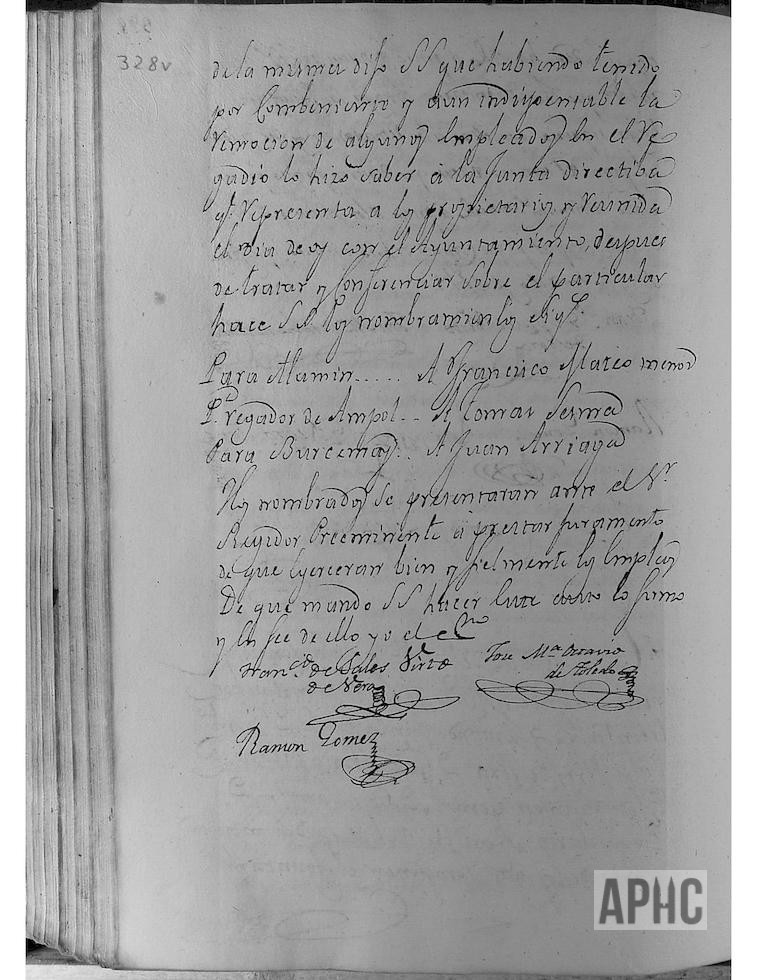 328v
de la misma dijo SS que habiendo tenido
por Combeniente y aun indispensable la
remocion de algunos Empleados en el Re
gadio lo hizo saber a la Junta directiba
qe. representa a los propietarios y reunida
el dia de oy con el Ayuntamiento, despues
de tratar y Conferenciar sobre el particular
hace SS los nombramientos Sigs.
Para Alamin..... A Francisco Mateo menor
Pa. regador de Ampol.. A Tomas Sesma
Para Burcemay.. A Juan Arriaga
Hos nombrados se presentaran ante el Sr.
Regidor Preeminente a prestar juramento
de que Egerceran bien y fielmente los Empleos
De que mando SS hacer este auto lo firmo
y en fee de ello yo el Esno
Franco. de Sales Virto
de Vera
Jose Ma. Octavio
de Toledo
Ramon Gomez
APHC